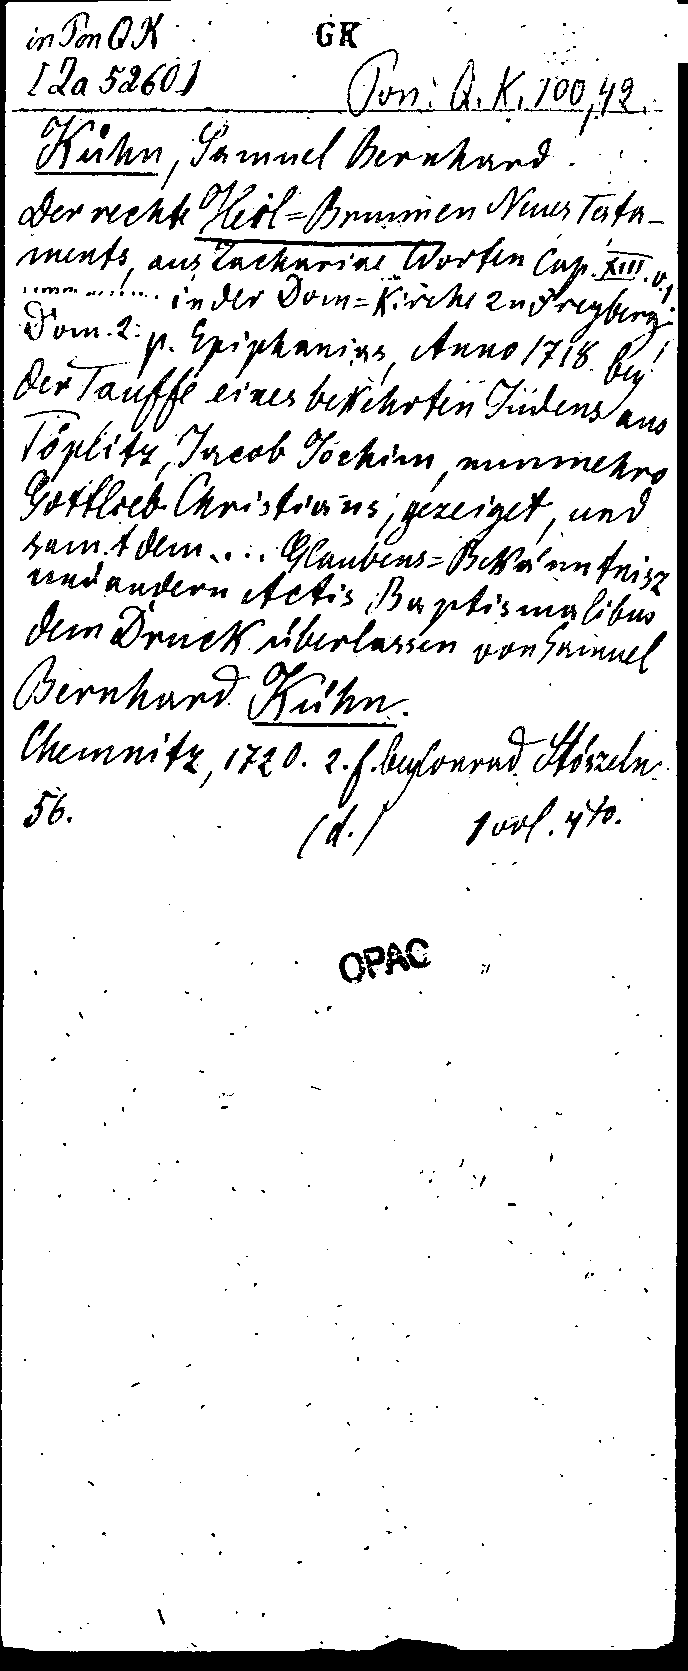 in Pon Q K
GK
[Za 5260]
Pon: Q. K. 100,42.
Kühn, Samuel Bernhard.
Der rechte Heil=Brunnen Neues Testa-
ments, aus Zachariae Worten Cap. XIII. v. 1
in der Dom=Kirche zu Freyberg
Dom. 2. p. Epiphanias, Anno 1718. bey
der Tauffe eines bekehrten Jüdens aus
Töplitz, Jacob Jochim, nunmehro
Gottlieb Christians, gezeiget, und
samt dem .... Glaubens=Bekänntnisz
und andern Actis Baptismalibus
dem Druck überlassen von Samuel
Bernhard Kühn.
Chemnitz, 1720. z. f. bey Conrad Stöszeln.
56. (d.) 1 vol. 4to.
OPAC